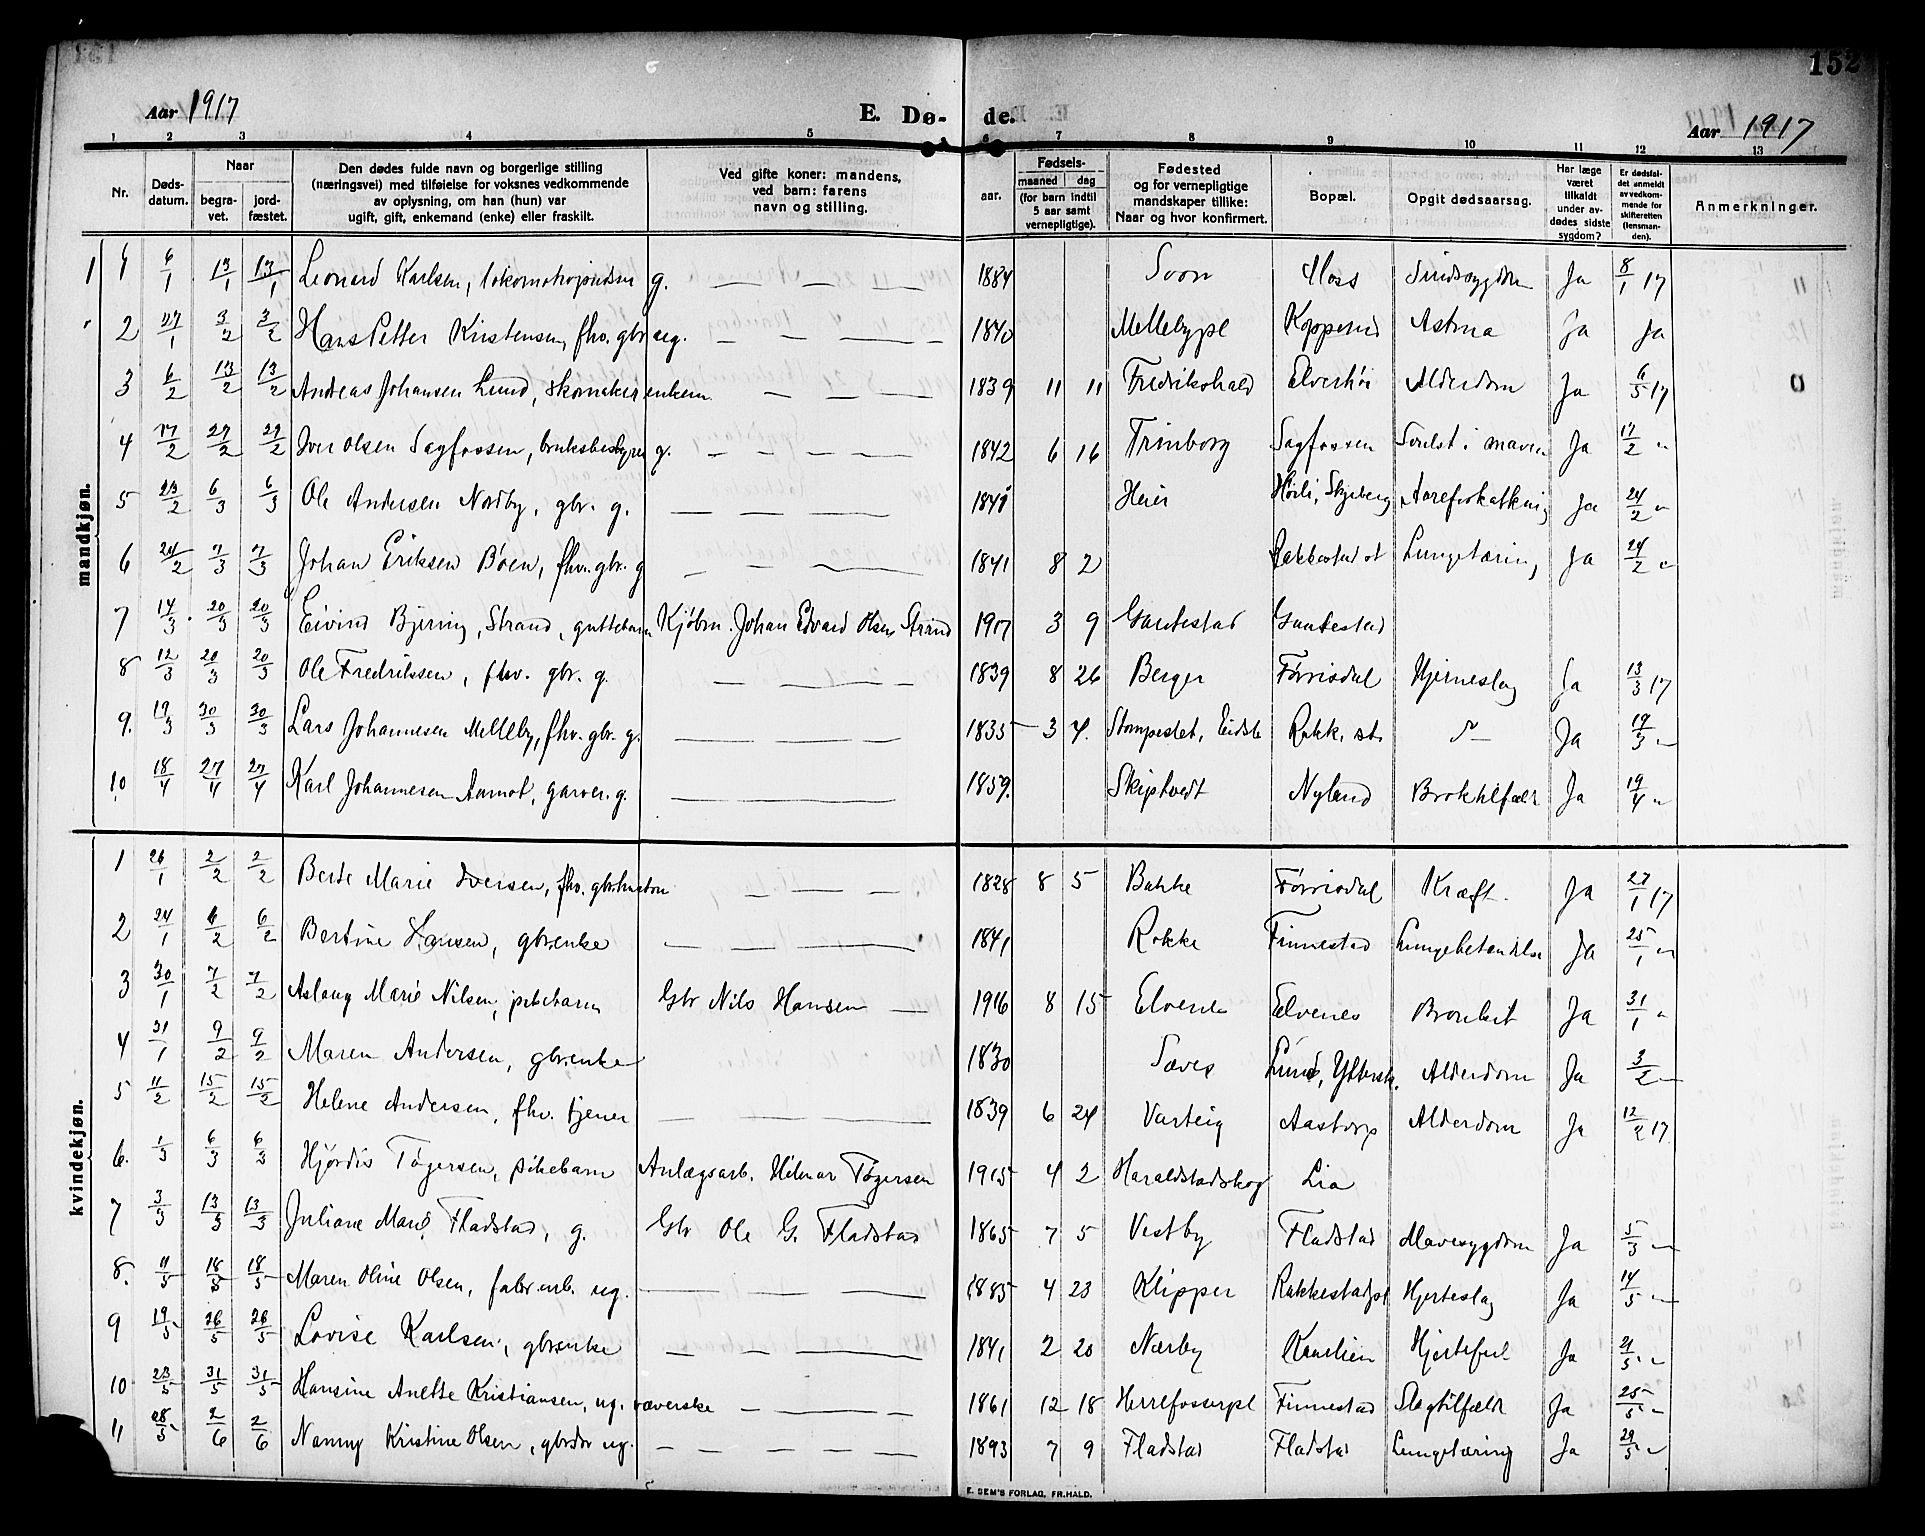 151
152
Aar 1917 E. Dø- de. Aar 1917
1 2 3 4 5 6 7 8 9 10 11 12 13
Nr. Døds-datum. Naar begra-vet. jord-fæstet. Den dødes fulde navn og borgerlige stilling (næringsvei) med tilføielse for voksnes vedkommende av oplysning, om han (hun) var ugift, gift, enkemand (enke) eller fraskilt. Ved gifte koner: mandens, ved barn: farens navn og stilling. aar. Fødsels- maaned dag (for barn indtil 5 aar samt vernepligtige). Fødested og for vernepligtige mandskaper tillike: Naar og hvor konfirmert. Bopæl. Opgit dødsaarsag. Har læge været tilkaldt under av-dødes sidste sygdom? Er dødsfal-det anmeldt av vedkom-mende for skifteretten (lensman-den). Anmerkninger.
mandkjøn.
1 6/1 13/1 13/1 Leonard Karlsen, g. 1884 Soon Moss Sindssygdom Ja 8/1 17
2 27/1 3/2 3/2 Hans Petter Kristensen, fhv. gbr. ug. 1840 Mellebypl Kopperud Astma Ja Ja
3 6/2 13/2 13/2 Andreas Johansen Lund, skomaker enkem 1839 11 11 Fredrikshald Elverhöi Alderdom Ja 6/5 17
4 17/2 27/2 27/2 Iver Olsen Sagfossen, bruksbestyrer g. 1842 6 16 Trinborg Sagfossen Svulst i maven Ja 17/2 "
5 23/2 6/3 6/3 Ole Andersen Nordby, gbr. g. 1841 Heier Höili, Skjeberg Aareforkalkning Ja 24/2 "
6 24/2 7/3 7/3 Johan Eriksen Böen, fhv. gbr. g 1841 8 2 Rakkestad st Lungetæring Ja 24/2 "
7 14/3 20/3 20/3 Eivind Bjerring, Strand, guttebarn Kjöbm. Johan Edvard Olsen Strand 1917 3 9 Gautestad Gautestad
8 12/3 20/3 20/3 Ole Fredriksen, fhv. gbr. g. 1839 8 26 Berger Förrisdal Hjerneslag Ja 13/3 17
9. 19/3 30/3 30/3 Lars Johannesen Melleby, fhv. gbr. g. 1835 3 4. Stompeslet, Eidsb Rakk. st. Ja 19/3 "
10 18/4 27/4 27/4 Karl Johannesen Aamot, garver. g. 1859. Skiptvedt Nyland Ja 19/4 "
kvindekjøn.
1 26/1 2/2 2/2 Berte Marie Iversen, fhv. gbrhustru 1828 8 5 Bakke Förrisdal Kræft. Ja 27/1 17
2 24/1 6/2 6/2 Bertine Hansen, gbrenke 1841 Rakke Finnestad Lungebetændelse Ja 25/1 "
3 30/1 7/2 7/2 Aslaug Marie Nilsen, pikebarn Gbr Nils Hansen 1916 8 15 Elvenes Elvenes Bronkit Ja 31/1 "
4 31/1 9/2 9/2 Maren Andersen, gbrenke 1830 Sæves Alderdom Ja 3/2 "
5 11/2 15/2 15/2 Helene Andersen, fhv. tjener 1839 6 24 Varteig Aastorp Alderdom Ja 12/2 17
6. 1/3 6/3 6/3 Hjördis Tögersen, pikebarn Anlægsarb. Hilmar Tögersen 1915 4 2 Haraldstadskog Lia
7 3/3 13/3 13/3 Juliane Marie Fladstad, g. Gbr Ole G. Fladstad 1865 7 5 Vestby Fladstad Mavesygdom Ja 5/3 "
8. 11/5 18/5 18/5 Maren Oline Olsen, fabr. arb. ug. 1885 4 23 Klipper Rakkestadpl Hjerteslag Ja 14/5 "
9 19/5 26/5 26/5 Lovise Karlsen, gbrenke 1841 2 20 Nærby Kaaelien Hjertefeil Ja 21/5 "
10 23/5 31/5 31/5 Hansine Anette Kristiansen, ug. væverske 1861 12 18 Herrefosserpl Finnestad Slagtilfælde Ja 25/5 "
11 28/5 2/6 2/6 Nanny Kristine Olsen, gbrdtr ug. 1893 7 9 Fladstad Fladstad Lungetæring Ja 29/5 "
E. SEM'S FORLAG, FR.HALD.